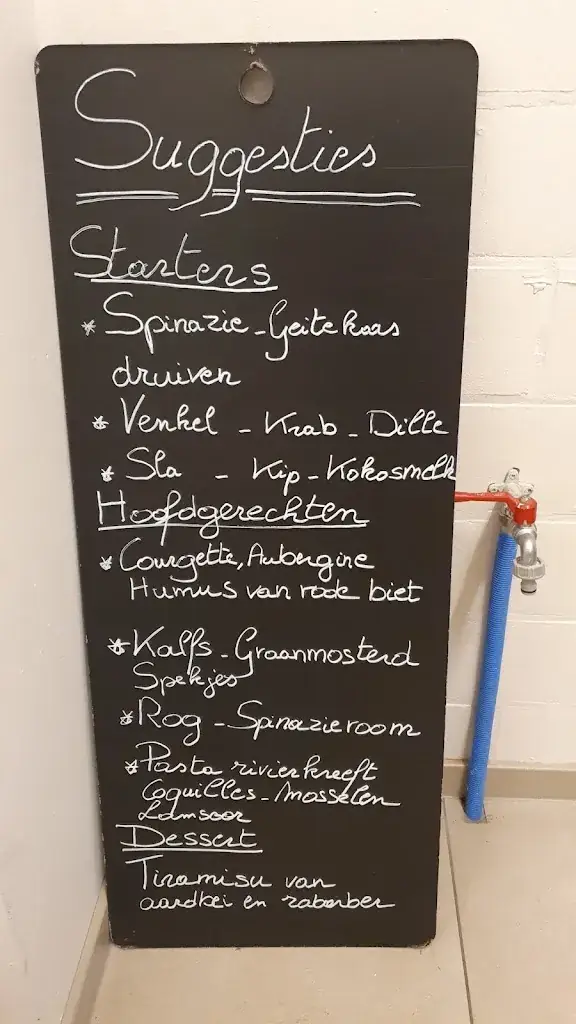 Suggesties
Starters
* Spinazie - Geitekaas
druiven
* Venkel - Krab - Dille
* Sla - Kip - Kokosmelk
Hoofdgerechten
* Courgette, Aubergine
Humus van rode biet
* Kalfs - Graanmosterd
Spekjes
* Rog - Spinazieroom
* Pasta rivierkreeft
Coquilles - Mosselen
Lamsoor
Dessert
Tiramisu van
aardbei en rabarber